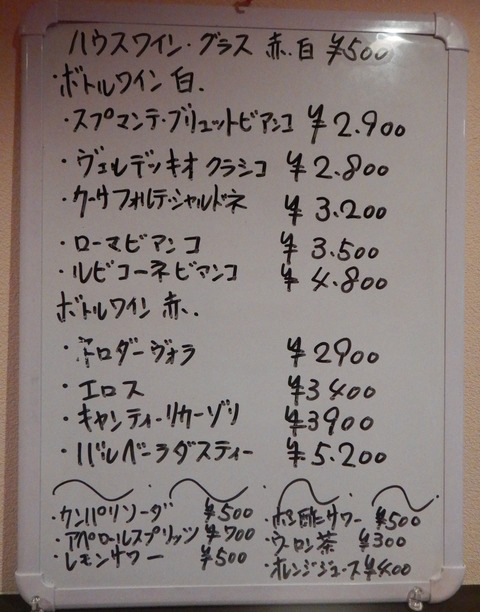 ハウスワイン・グラス 赤.白 ¥500
・ボトルワイン 白.
・スプマンテ・ブリュットビアンコ ¥2.900
・ヴェルデッキオ クラシコ ¥2.800
・クーサフォルテ・シャルドネ ¥3.200
・ローマビアンコ ¥3.500
・ルビコーネビアンコ ¥4.800
ボトルワイン 赤.
ネロダーヴォラ ¥2900
・エロス ¥3400
・キャンティーリカーゾリ ¥3900
・バルベーラダスティー ¥5.200
・カンパリソーダ ¥500
・アペロールスプリッツ ¥700
・レモンサワー ¥500
・ホン酢サワー ¥500
・ウーロン茶 ¥300
・オレンジジュース ¥400